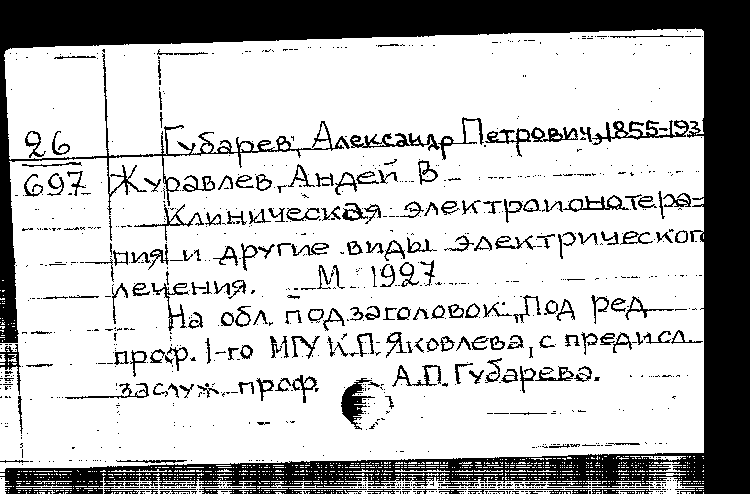 26 Губарев, Александр Петрович, 1855-193
697 Журавлев, Андей В
Клиническая электроионотера=
пия и другие виды электрического
лечения. М 1927
На обл. подзаголовок: „Под ред
проф. 1-го МГУ К.П. Яковлева, с предисл.
заслуж. проф. А.П. Губарева.